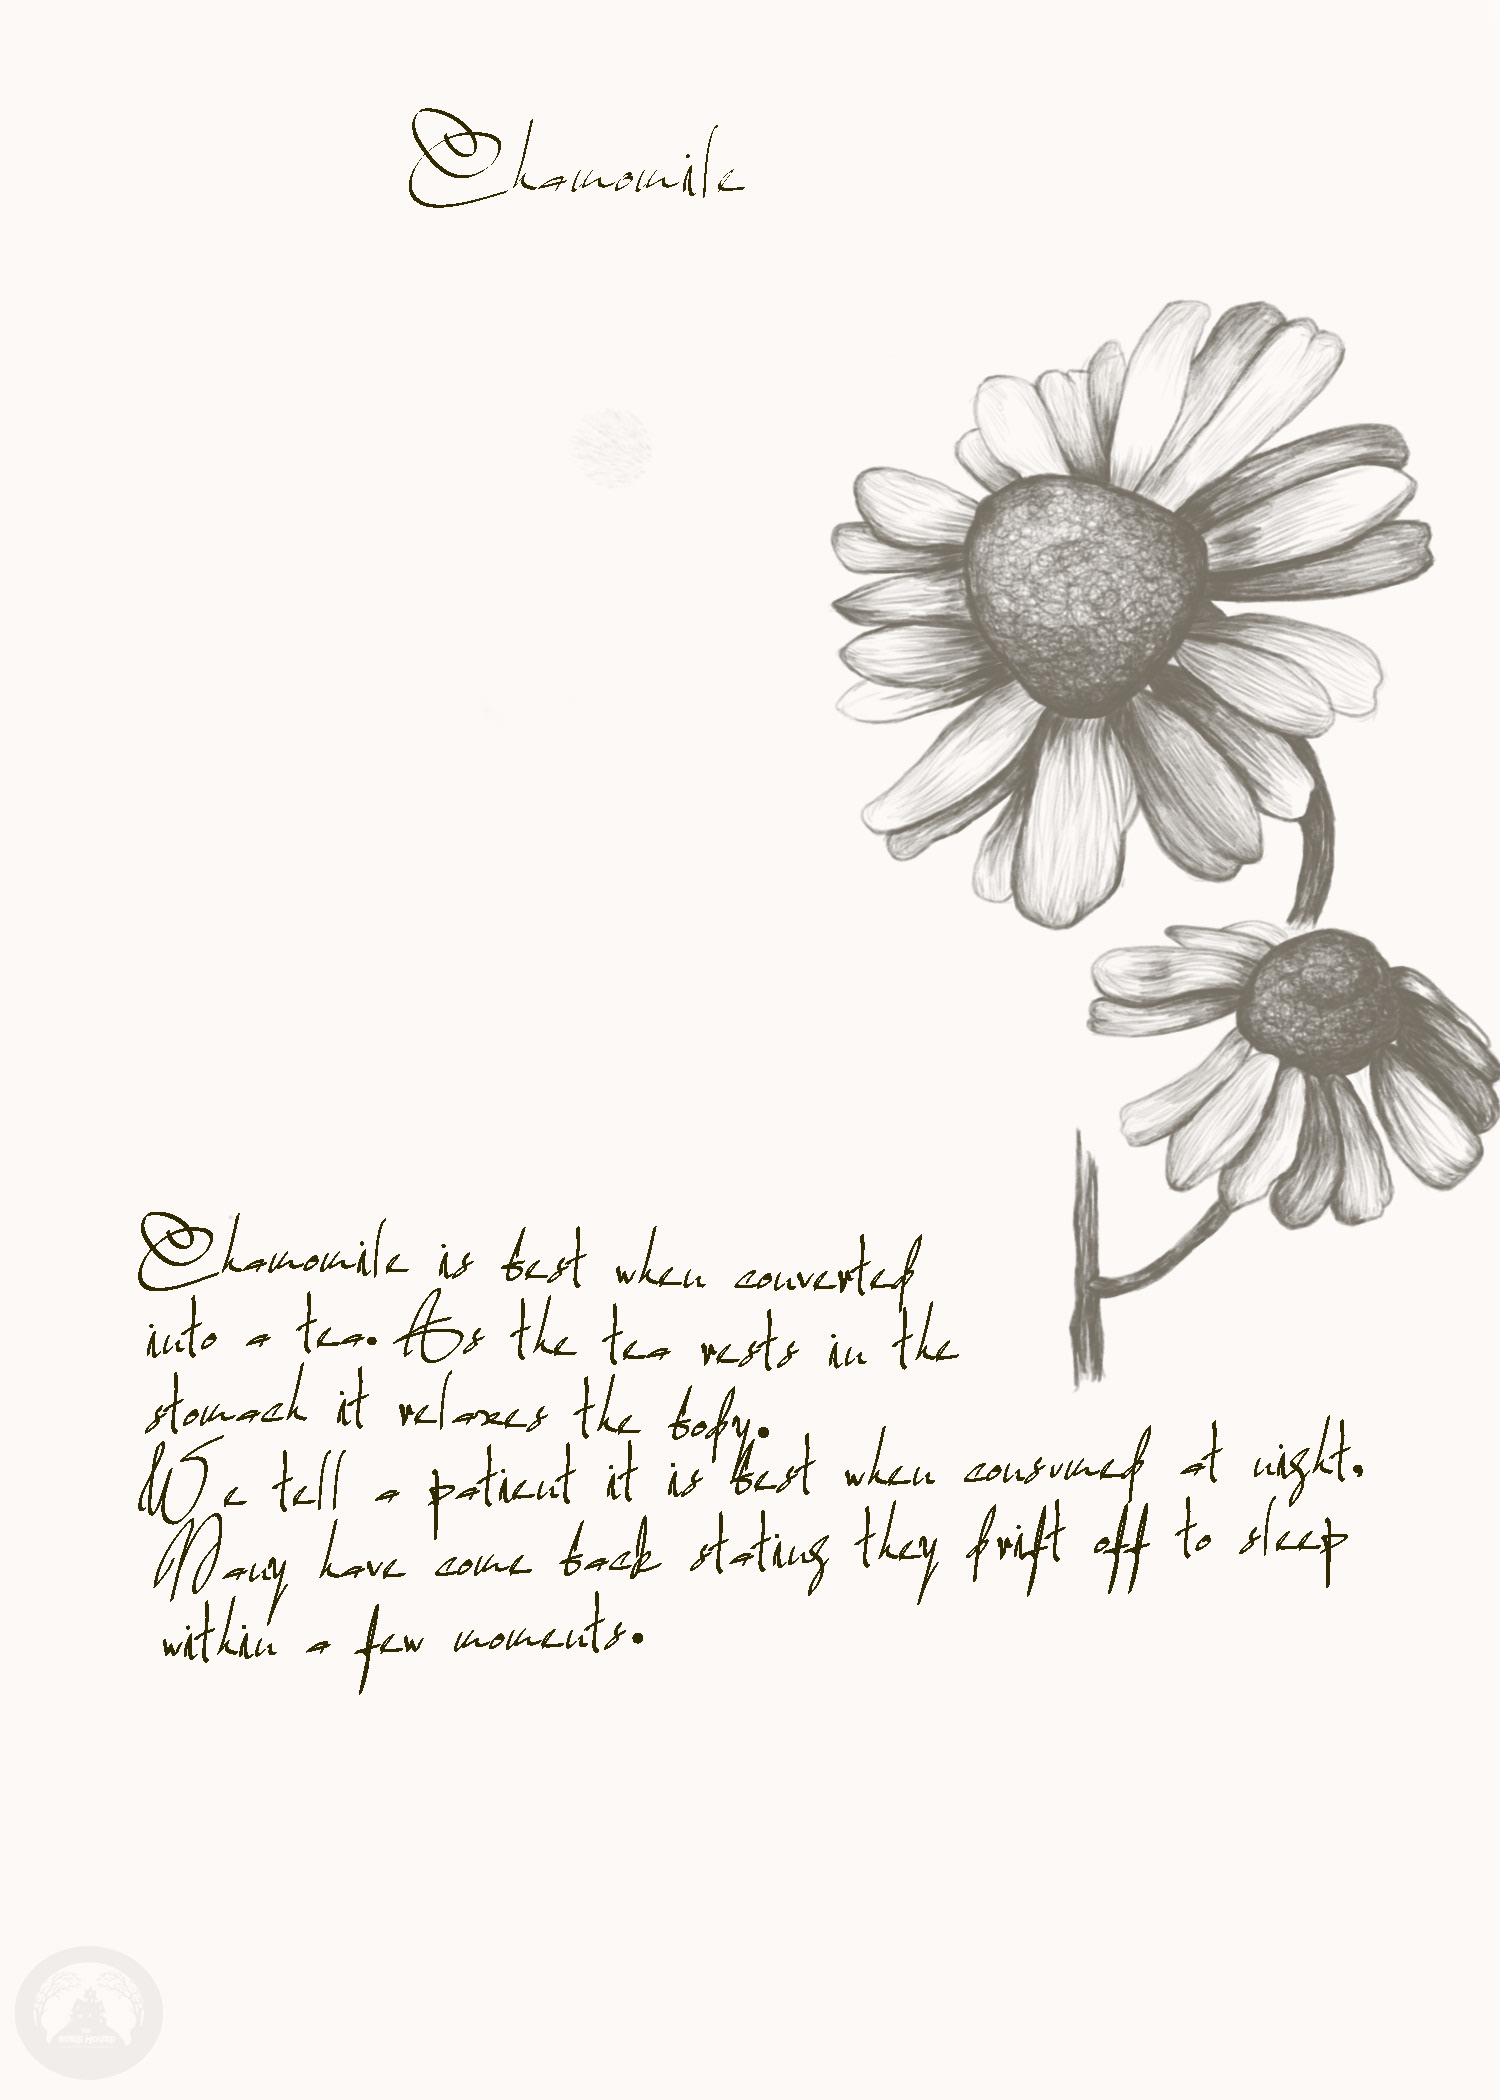 Chamomile
Chamomile is best when converted
into a tea. As the tea rests in the
stomach it relaxes the body.
We tell a patient it is best when consumed at night.
Many have come back stating they drift off to sleep
within a few moments.